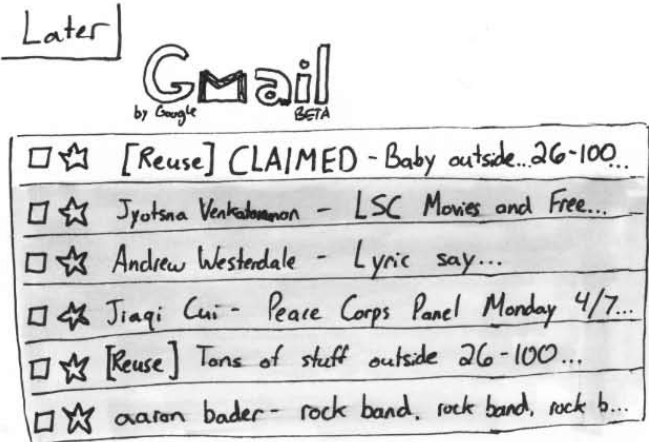 Later
Gmail
by Google BETA
[Reuse] CLAIMED - Baby outside...26-100...
Jyotsna - LSC Movies and Free...
Andrew Westerdale - Lyric say...
Jiaqi Cui - Peace Corps Panel Monday 4/7...
[Reuse] Tons of stuff outside 26-100...
aaron bader - rock band, rock band, rock b...